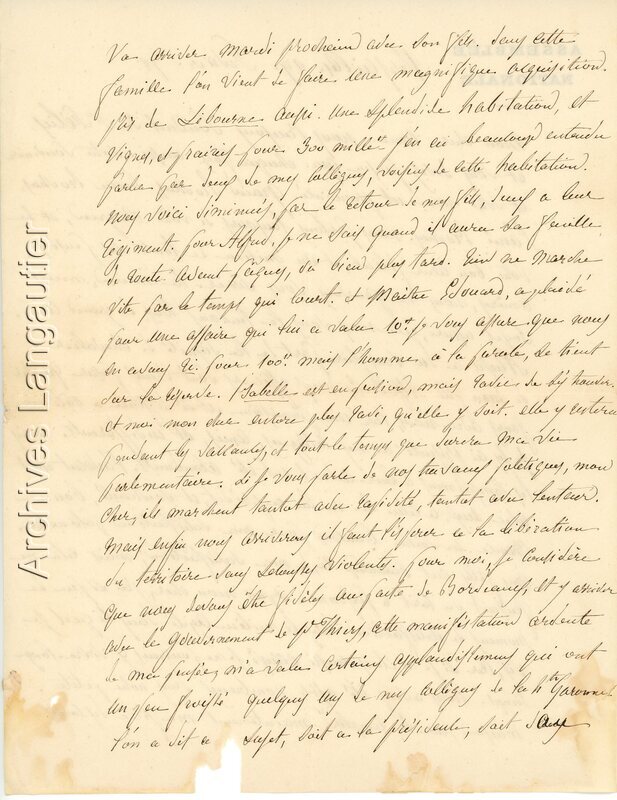 Va arriver mardi prochain avec son fils. dans cette
famille l'on vient de faire une magnifique acquisition.
près de Libourne aussi. une splendide habitation, et
vignes, et prairies pour 300 mille f. j'en ai beaucoup entendu
parler par deux de mes collègues, voisins de cette habitation.
nous voici diminués, par le retour de mes fils, deux a leur
régiment. pour Alfred, je ne sais quand il aura sa feuille
de route. avant pâques, ou bien plus tard. rien ne marche
vite par le temps qui court. et Maitre Edouard, a plaidé
pour une affaire qui lui a valu 10f. je vous assure que nous
en avons ri pour 100f. mais l'homme à la parole, se tient
sur la réserve. Isabelle est en pension, mais ravie de s'y trouver.
et moi mon cher encore plus ravi, qu'elle y soit. elle y restera
pendant les vacances, et tout le temps que durera ma vie
parlementaire. Si je vous parle de nos travaux politiques, mon
cher, ils marchent tantot avec rapidité, tantot avec lenteur.
Mais enfin nous arriverons il faut l'espérer a la libération
du territoire sans secousses violentes. pour moi, je considère
que nous devons être fidèles au pacte de Bordeaux, et y arriver
avec le gouvernement de Mr Thiers, cette manifestation ardente
de ma pensée, m'a valu certains applaudissemens qui ont
un peu froissé quelques uns de mes collègues de la hte Garonne.
l'on a dit a sujet, soit a la présidente, soit dans
Archives Langautier